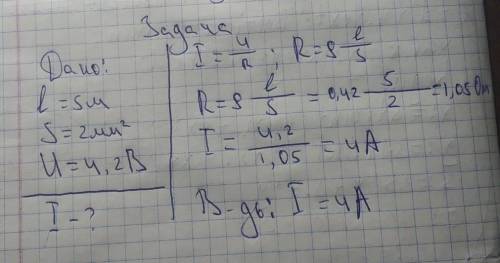 Задача
Дано:
l = 5м
S = 2мм²
U = 4,2В
I - ?
I = U/R ; R = ρ l/S
R = ρ l/S = 0,42 5/2 = 1,05 Ом
I = 4,2/1,05 = 4А
В-дь: I = 4А